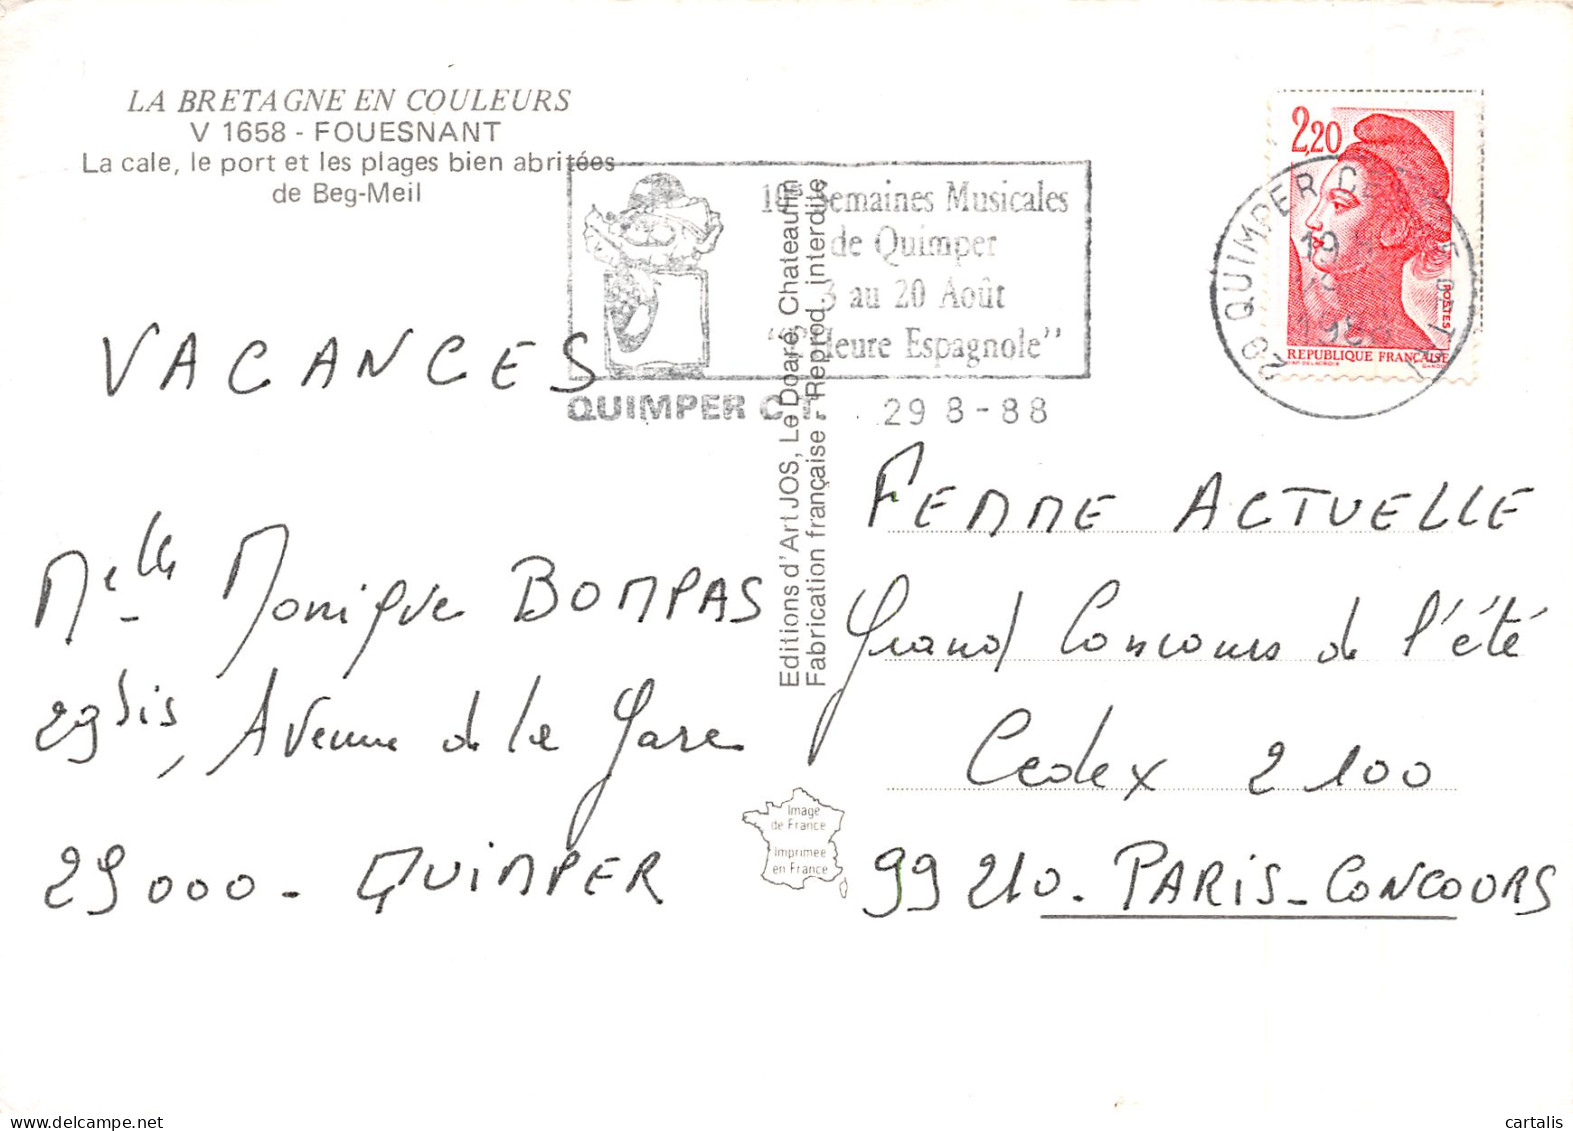 LA BRETAGNE EN COULEURS
V 1658 - FOUESNANT
La cale, le port et les plages bien abritées
de Beg-Meil
10es Semaines Musicales
de Quimper
3 au 20 Août
Heure Espagnole"
QUIMPER C.T. 29 8-88
2,20
POSTES
REPUBLIQUE FRANÇAISE
29 QUIMPER
19
VACANCES
Melle Monique BOMPAS
29 bis, Avenue de la Gare
29000 - QUIMPER
Editions d'Art JOS, Le Doaré, Chateaulin
Fabrication française - Reprod. interdite
Image
de France
Imprimée
en France
FEMME ACTUELLE
Grand Concours de l'été
Cedex 2100
99210 - PARIS-CONCOURS
cartalis